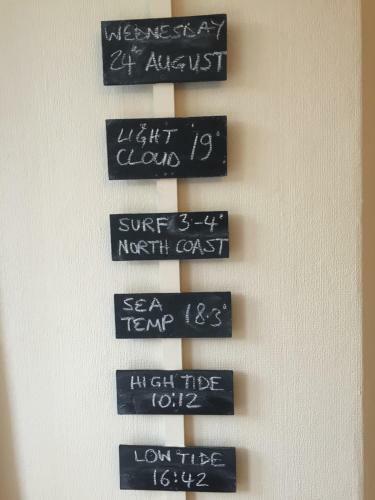 WEDNESDAY
24th AUGUST
LIGHT
CLOUD 19°
SURF 3-4'
NORTH COAST
SEA
TEMP 18.3°
HIGH TIDE
10:12
LOW TIDE
16:42